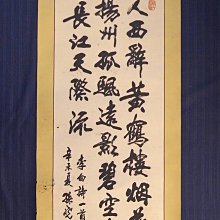 人西辭黃鶴樓烟花
揚州孤颿遠影碧空
長江天際流
李白詩一首
辛未夏